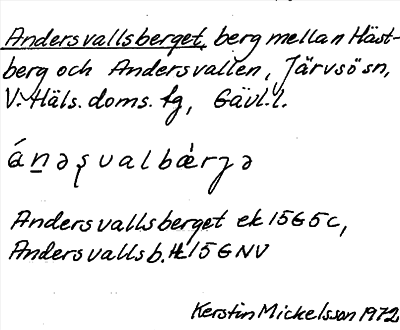 Andersvallsberget, berg mellan Häst-
berg och Andersvallen, Järvsö sn,
V. Häls. doms. tg, Gävl. l.
án̲əʂvalbæ̀rjə
Andersvallsberget ek 15G5c,
Andersvallsb. Hk 15G NV
Kerstin Mickelsson 1972